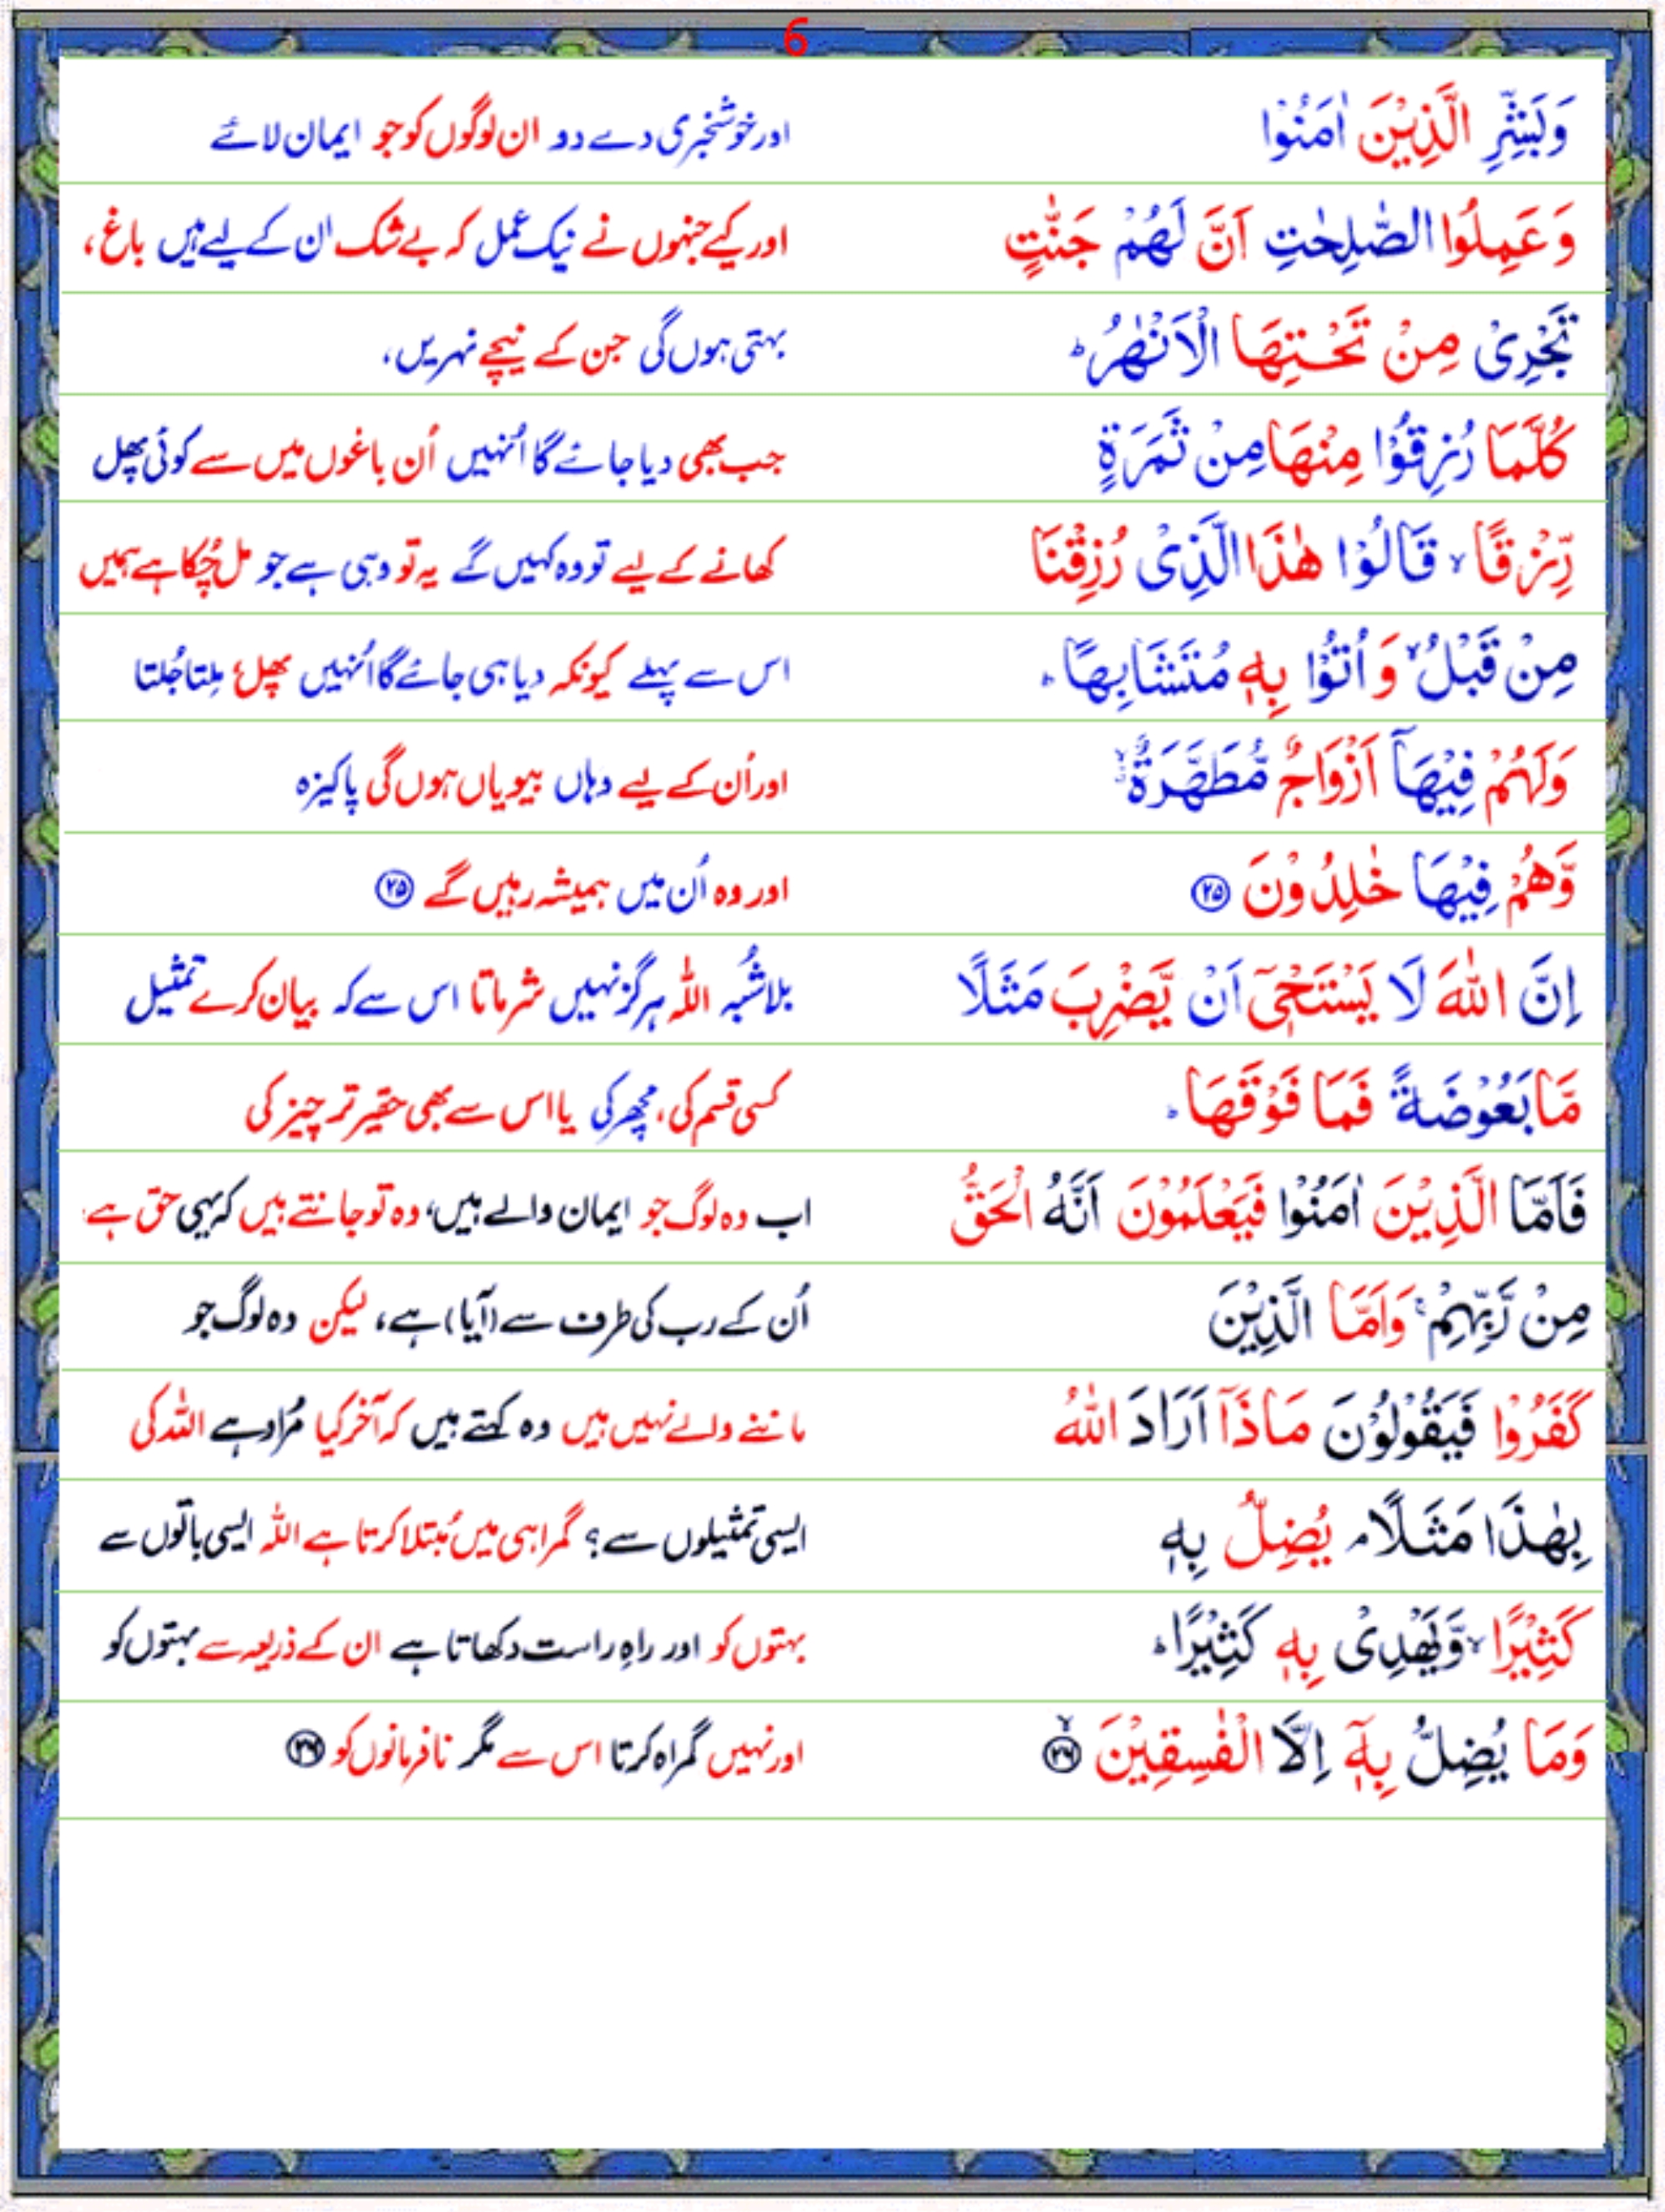 6
وَبَشِّرِ الَّذِيْنَ اٰمَنُوْا اور خوشخبری دے دو ان لوگوں کو جو ایمان لائے
وَعَمِلُوا الصّٰلِحٰتِ اَنَّ لَهُمْ جَنّٰتٍ اور کیے جنہوں نے نیک عمل کہ بے شک ان کے لیے ہیں باغ،
تَجْرِىْ مِنْ تَحْتِهَا الْاَنْهٰرُؕ بہتی ہوں گی جن کے نیچے نہریں،
كُلَّمَا رُزِقُوْا مِنْهَا مِنْ ثَمَرَةٍ جب بھی دیا جائے گا اُنہیں اُن باغوں میں سے کوئی پھل
رِّزْقًا ۙ قَالُوْا هٰذَا الَّذِىْ رُزِقْنَا کھانے کے لیے تو وہ کہیں گے یہ تو وہی ہے جو مل چُکا ہے ہمیں
مِنْ قَبْلُ ۙ وَاُتُوْا بِهٖ مُتَشَابِهًا ؕ اس سے پہلے کیونکہ دیا ہی جائے گا اُنہیں پھل مِلتا جُلتا
وَلَهُمْ فِيْهَآ اَزْوَاجٌ مُّطَهَّرَةٌ ۙ اور اُن کے لیے وہاں بیویاں ہوں گی پاکیزہ
وَّهُمْ فِيْهَا خٰلِدُوْنَ ۲۵ اور وہ اُن میں ہمیشہ رہیں گے ۲۵
اِنَّ اللّٰهَ لَا يَسْتَحْىٖٓ اَنْ يَّضْرِبَ مَثَلًا بلاشُبہ اللہ ہرگز نہیں شرماتا اس سے کہ بیان کرے تمثیل
مَّا بَعُوْضَةً فَمَا فَوْقَهَا ؕ کسی قسم کی، مچھر کی یا اس سے بھی حقیر تر چیز کی
فَاَمَّا الَّذِيْنَ اٰمَنُوْا فَيَعْلَمُوْنَ اَنَّهُ الْحَقُّ اب وہ لوگ جو ایمان والے ہیں، وہ تو جانتے ہیں کہ یہی حق ہے
مِنْ رَّبِّهِمْ ۚ وَاَمَّا الَّذِيْنَ اُن کے رب کی طرف سے (آیا) ہے، لیکن وہ لوگ جو
كَفَرُوْا فَيَقُوْلُوْنَ مَاذَآ اَرَادَ اللّٰهُ ماننے والے نہیں ہیں وہ کہتے ہیں کہ آخر کیا مُراد ہے اللہ کی
بِهٰذَا مَثَلًا ۘ يُضِلُّ بِهٖ ایسی تمثیلوں سے؟ گمراہی میں مُبتلا کرتا ہے اللہ ایسی باتوں سے
كَثِيْرًا ۙ وَّيَهْدِىْ بِهٖ كَثِيْرًا ؕ بہتوں کو اور راہِ راست دکھاتا ہے ان کے ذریعہ سے بہتوں کو
وَمَا يُضِلُّ بِهٖٓ اِلَّا الْفٰسِقِيْنَ ۙ ۲۶ اور نہیں گمراہ کرتا اس سے مگر نافرمانوں کو ۲۶